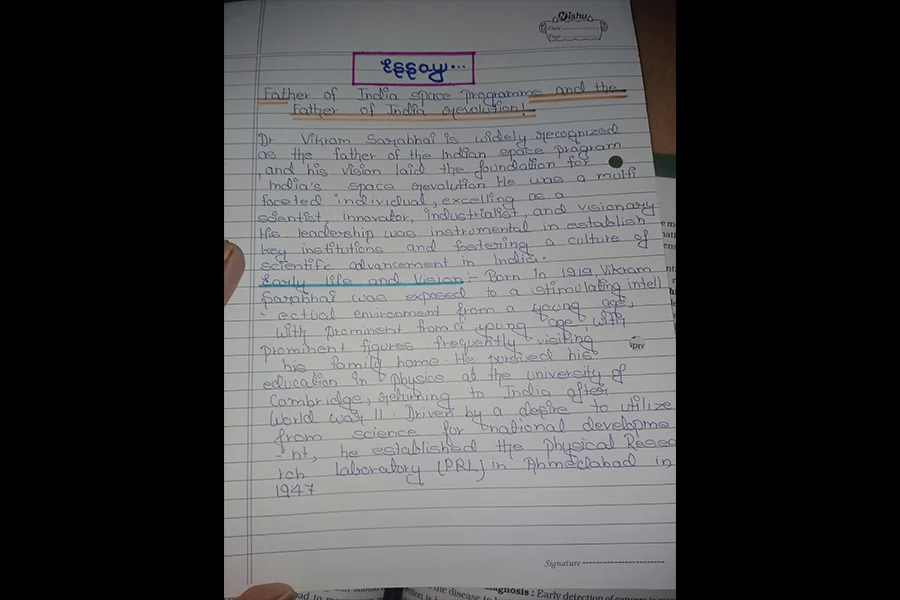 Nishu
Date
Page
Essay...
Father of India space programme and the
Father of India revolution!
Dr Vikram Sarabhai is widely recognized
as the father of the Indian space program
, and his vision laid the foundation for
India's space revolution He was a multi
faceted individual, excelling as a
scientist, innovator, industrialist, and visionary
His leadership was instrumental in establish
key institutions and fostering a culture of
scientific advancement in India.
Early life and Vision :- Born in 1919, Vikram
Sarabhai was exposed to a stimulating intell
- ectual environment from a young age,
with prominent from a young age, with
prominent figures frequently visiting
his family home. He pursued his
education in physics at the university of
Cambridge, returning to India after
World war II. Driven by a desire to utilize
from science for national developme
- nt, he established the physical Resea
rch laboratory (PRL) in Ahmedabad in
1947
Signature
the disease to
diagnosis : Early detection of